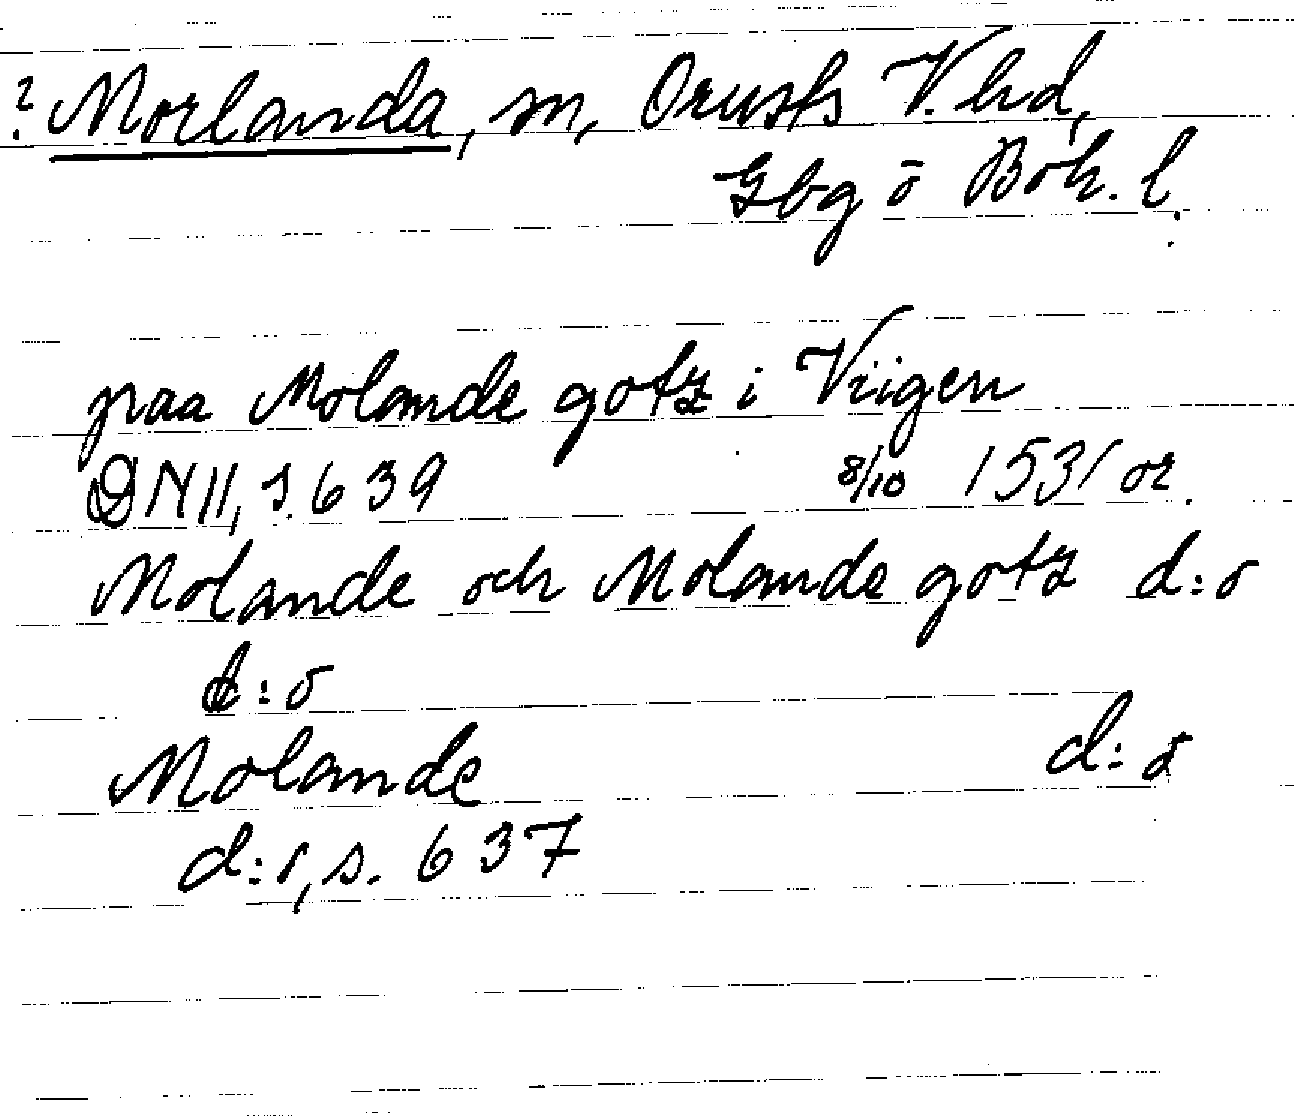 ? Morlanda, sn, Orusts V. hd,
Gbg o Boh. l.
paa Molande gotz i Viigen
DN II, s. 639 8/10 1531 or.
Molande och Molande gotz d:o
d:o
Molande d:o
d:o, s. 637